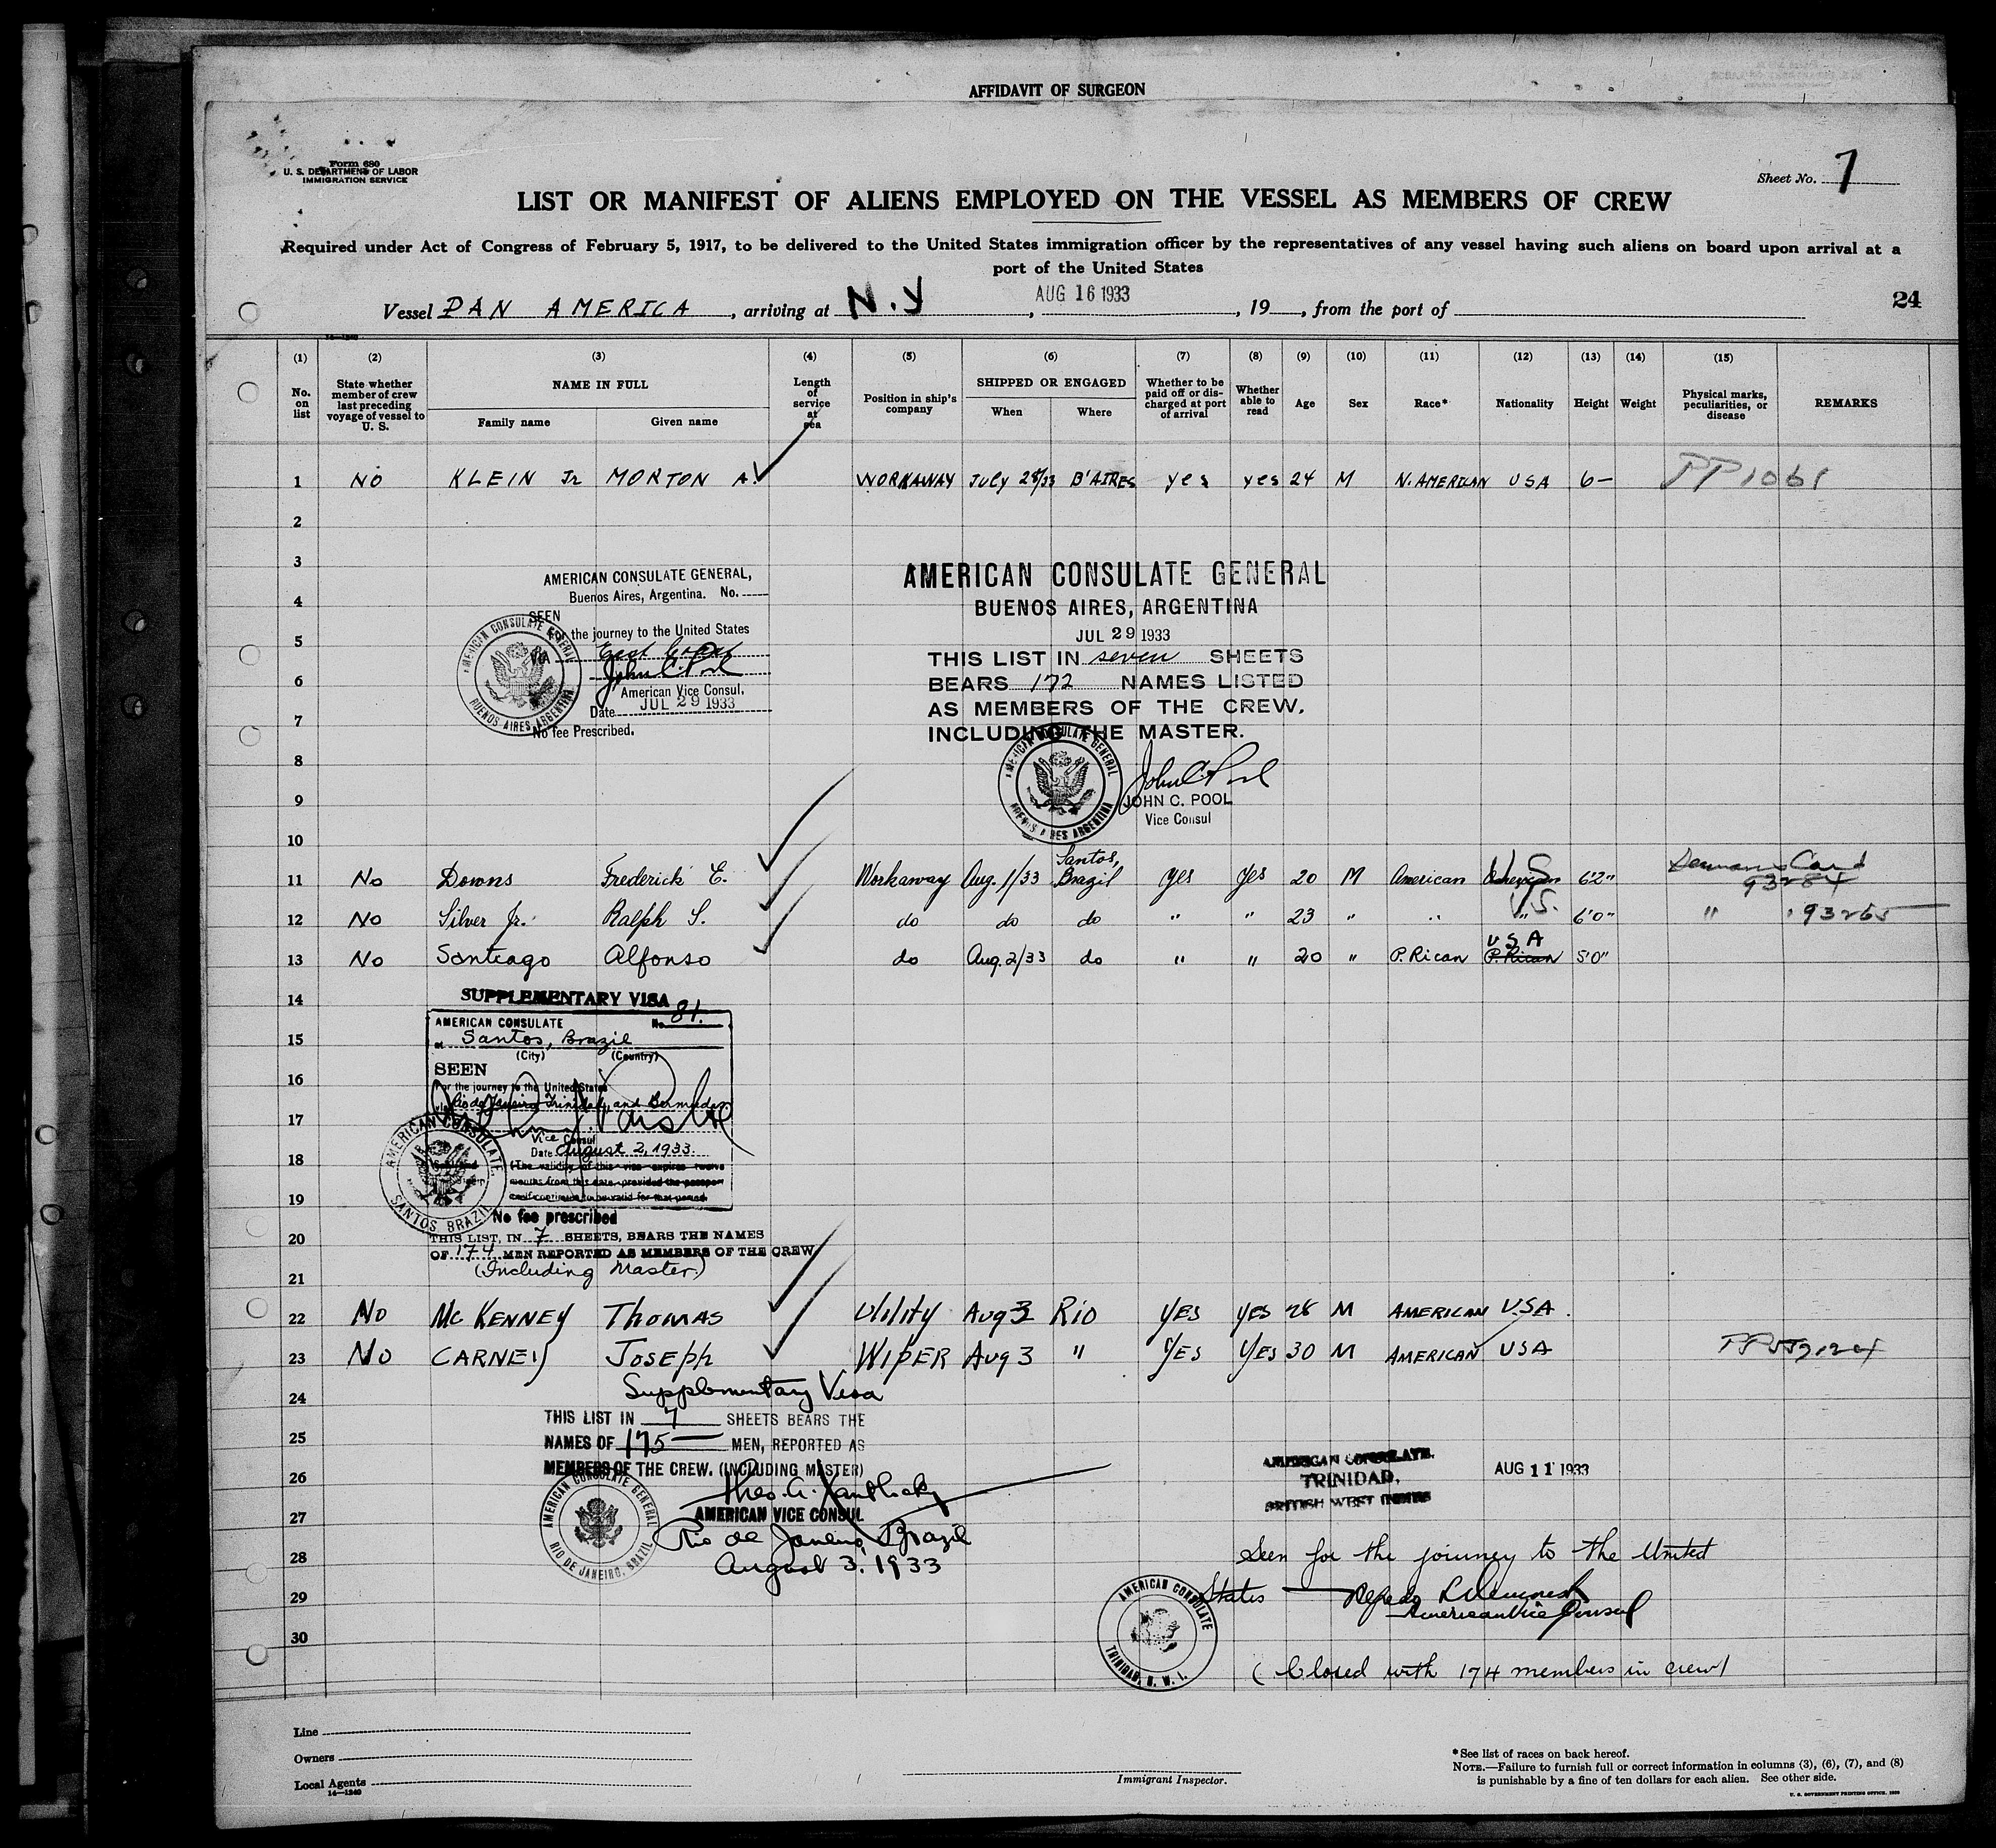 AFFIDAVIT OF SURGEON
Form 680
U. S. DEPARTMENT OF LABOR
IMMIGRATION SERVICE
Sheet No. 7
LIST OR MANIFEST OF ALIENS EMPLOYED ON THE VESSEL AS MEMBERS OF CREW
Required under Act of Congress of February 5, 1917, to be delivered to the United States immigration officer by the representatives of any vessel having such aliens on board upon arrival at a
port of the United States
Vessel PAN AMERICA, arriving at N.Y, AUG 16 1933, 19, from the port of
24
14—1240
(1) (2) (3) (4) (5) (6) (7) (8) (9) (10) (11) (12) (13) (14) (15)
No. on list
State whether member of crew last preceding voyage of vessel to U. S.
NAME IN FULL
Family name Given name
Length of service at sea
Position in ship's company
SHIPPED OR ENGAGED
When Where
Whether to be paid off or discharged at port of arrival
Whether able to read
Age Sex Race* Nationality Height Weight
Physical marks, peculiarities, or disease
REMARKS
1 NO KLEIN Jr MORTON A. WORKAWAY July 28/33 B'AIRES yes yes 24 M N. AMERICAN USA 6— PP 1061
2
3
4
5
6
7
8
9
10
AMERICAN CONSULATE GENERAL,
Buenos Aires, Argentina. No.
SEEN
For the journey to the United States
VIA East Coast
John C. Pool
American Vice Consul.
Date JUL 29 1933
No fee Prescribed.
AMERICAN CONSULATE GENERAL
BUENOS AIRES ARGENTINA
AMERICAN CONSULATE GENERAL
BUENOS AIRES, ARGENTINA
JUL 29 1933
THIS LIST IN seven SHEETS
BEARS 172 NAMES LISTED
AS MEMBERS OF THE CREW,
INCLUDING THE MASTER.
AMERICAN CONSULATE GENERAL
BUENOS AIRES ARGENTINA
John C. Pool
JOHN C. POOL
Vice Consul
11 No Downs Frederick E. Workaway Aug. 1/33 Santos, Brazil yes yes 20 M American U.S. 6'2" Seamans Card 93264
12 No Silver Jr. Ralph S. do do do " " 23 " " U.S. 6'0" " 93265
13 No Santiago Alfonso do Aug. 2/33 do " " 20 " P. Rican USA P. Rican 5'0"
14
15
16
17
18
19
20
21
SUPPLEMENTARY VISA
AMERICAN CONSULATE No. 81.
at Santos, Brazil
(City) (Country)
SEEN
For the journey to the United States
via Rio de Janeiro, Trinidad, and Bermuda
Vice Consul
Date August 2, 1933.
(The validity of this visa expires twelve
months from this date, provided the passport
continues to be valid for that period.
AMERICAN CONSULATE
SANTOS BRAZIL
No fee prescribed
THIS LIST, IN 7 SHEETS, BEARS THE NAMES
OF 174 MEN REPORTED AS MEMBERS OF THE CREW
(Including Master.)
22 No McKENNEY THOMAS Utility Aug 3 Rio yes yes 28 M AMERICAN U.SA.
23 No CARNEY JOSEPH WIPER Aug 3 " YES YES 30 M AMERICAN USA
24
25
26
27
28
29
30
Supplementary Visa
THIS LIST IN 7 SHEETS BEARS THE
NAMES OF 175 MEN, REPORTED AS
MEMBERS OF THE CREW. (INCLUDING MASTER)
AMERICAN VICE CONSUL
Rio de Janeiro, Brazil
August 3. 1933
AMERICAN CONSULATE GENERAL
RIO DE JANEIRO, BRAZIL
AMERICAN CONSULATE,
TRINIDAD,
BRITISH WEST INDIES
AUG 11 1933
Seen for the journey to the United
States
American Vice Consul
AMERICAN CONSULATE
TRINIDAD, B. W. I.
(Closed with 174 members in crew)
Line
Owners
Local Agents
14—1240
Immigrant Inspector.
*See list of races on back hereof.
NOTE.—Failure to furnish full or correct information in columns (3), (6), (7), and (8)
is punishable by a fine of ten dollars for each alien. See other side.
U. S. GOVERNMENT PRINTING OFFICE